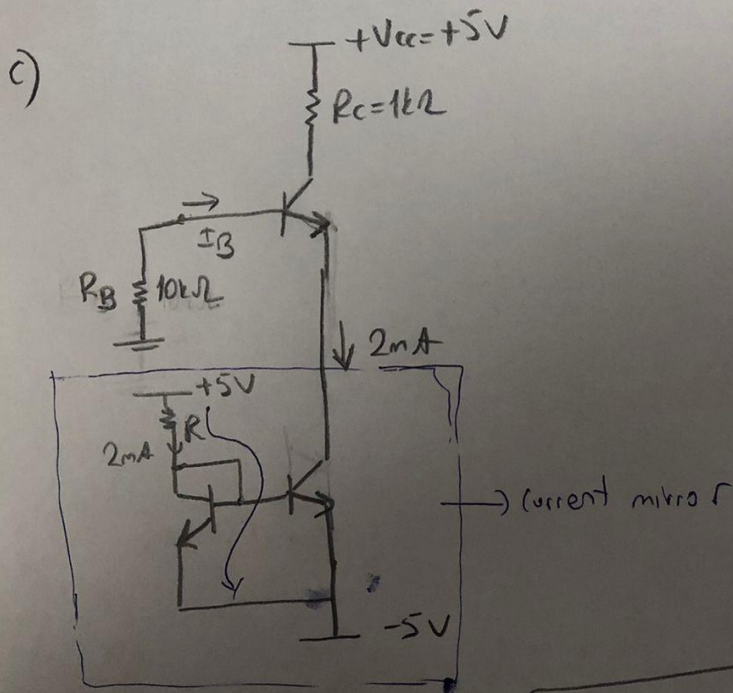 c)
+Vcc=+5V
Rc=1kΩ
IB
RB 10kΩ
2mA
+5V
R
2mA
→ Current mirror
-5V